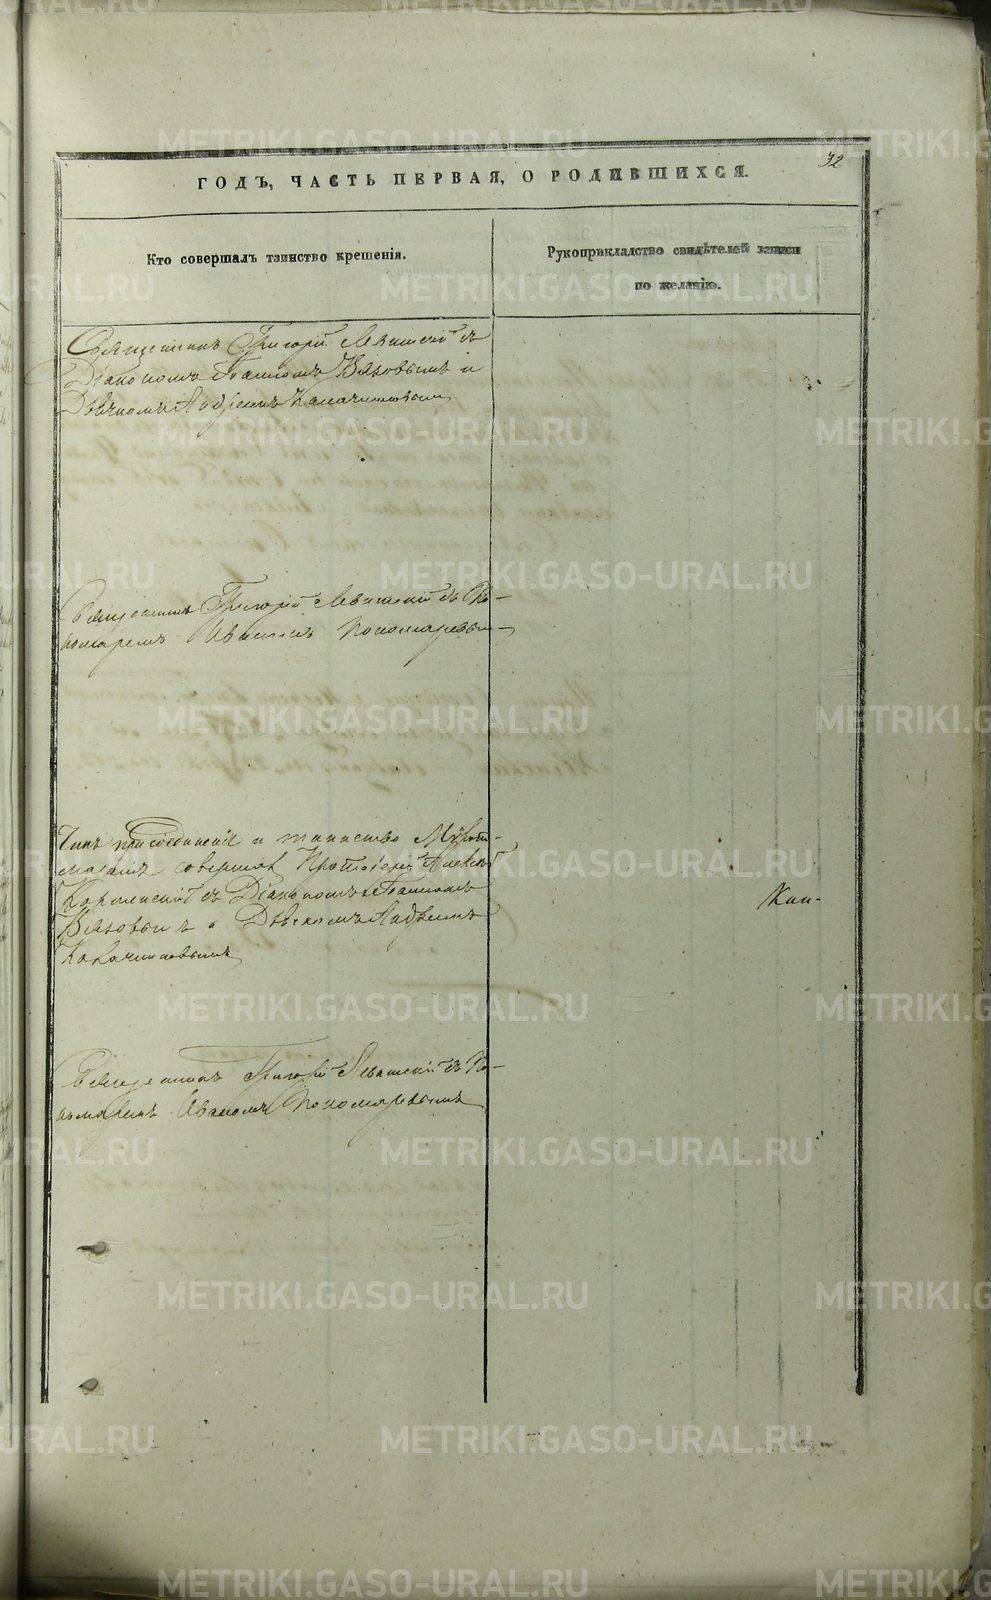 32
ГОДЪ, ЧАСТЬ ПЕРВАЯ, О РОДИВШИХСЯ.
Кто совершалъ таинство крещенія.
Рукоприкладство свидѣтелей записи
по желанію.
Священникъ Григорій Левитскій съ
Діакономъ Іоанномъ Вязовымъ и
Дьячкомъ Андреемъ Калачниковым
Священникъ Григорій Левитскій съ По-
номаремъ Иваномъ Пономаревым
Чинъ присоединенія и таинство Мѵропо-
мазанія совершилъ Протоіерей Алексѣй
съ Діакономъ Іоанномъ
Вязовымъ и Дьячкомъ Андреемъ
Калачниковымъ
Священникъ Григорій Левитскій съ По-
номаремъ Иваномъ Пономаревымъ
METRIKI.GASO-URAL.RU